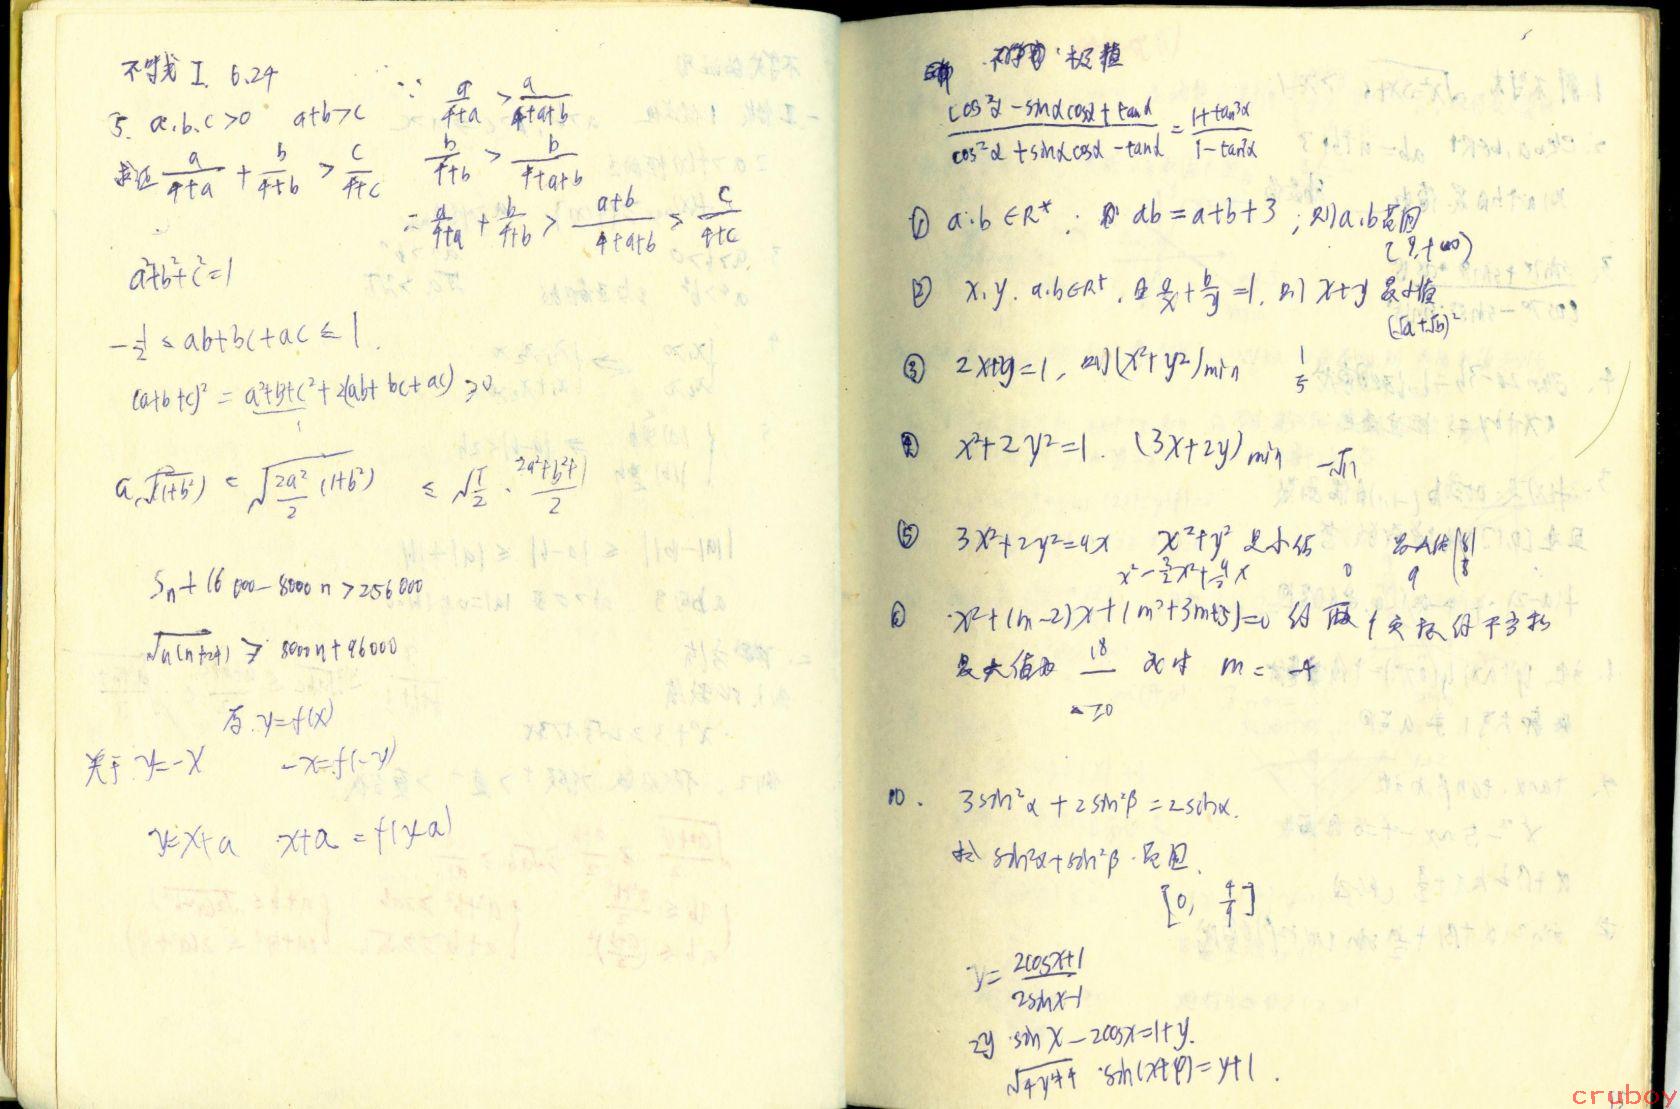 不等式 I. 6.24
5. a.b.c>0 a+b>c
求证 a/(4+a) + b/(4+b) > c/(4+c)
∵ a/(4+a) > a/(4+a+b)
b/(4+b) > b/(4+a+b)
= a/(4+a) + b/(4+b) > (a+b)/(4+a+b) > c/(4+c)
a²+b²+c²=1
-1/2 ≤ ab+bc+ac ≤ 1.
(a+b+c)² = a²+b²+c²+2(ab+bc+ac) ≥0
1
a√(1+b²) = √(2a²/2 (1+b²)) ≤ √(1/2) · (2a²+b²+1)/2
Sn+16000-8000n>256000
√n(n+24) ≥ 8000n+96000
y=f(x)
关于 y=-x -x=f(-y)
y=x+a x+a=f(y-a)
不等式·极值
(cos²α-sinαcosα+tanα)/(cos²α+sinαcosα-tanα) = (1+tan³α)/(1-tan³α)
① a·b∈R⁺; ab=a+b+3; 则a·b范围
[9,+∞)
② x,y.a.b∈R⁺, 且a/x+b/y=1, 则x+y最小值
(√a+√b)²
③ 2x+y=1, 则(x²+y²)min 1/5
④ x²+2y²=1. (3x+2y)min -√11
⑤ 3x²+2y²=9x x²+y²最小值 最大值
x²-3/2x²+9/2x 0 9
⑥ x²+(m-2)x+(m²+3m+5)=0的两个实根的平方和
最大值为 18 此时 m= -4
10. 3sin²α+2sin²β=2sinα.
求 sin²α+sin²β·范围.
[0, 4/9]
y=(2cosx+1)/(2sinx-1)
2y·sinx-2cosx=1+y.
√(4y²+4)·sin(x+φ)=y+1.
cruboy